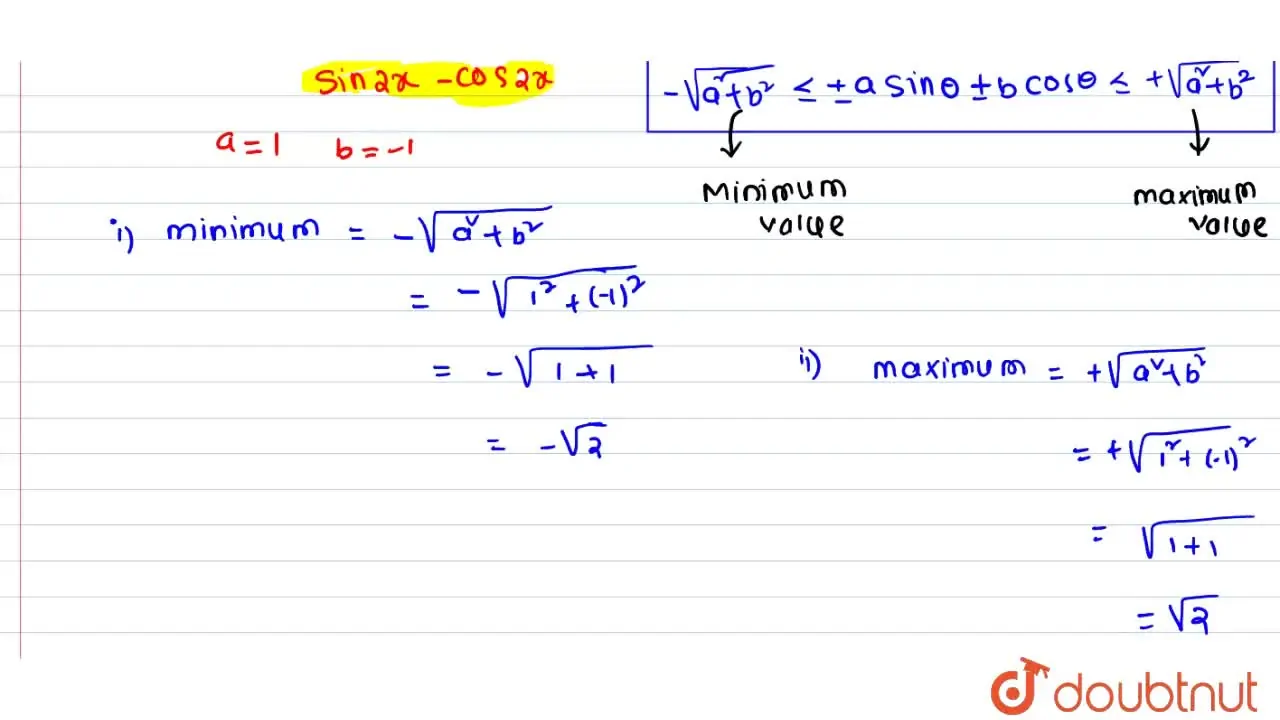 sin2x - cos2x
-√(a²+b²) ≤ ±a sinθ ± b cosθ ≤ +√(a²+b²)
a = 1    b = -1
Minimum value
maximum value
i) minimum = -√(a²+b²)
= -√(1²+(-1)²)
= -√(1+1)
= -√2
ii) maximum = +√(a²+b²)
= +√(1²+(-1)²)
= √(1+1)
= √2
doubtnut